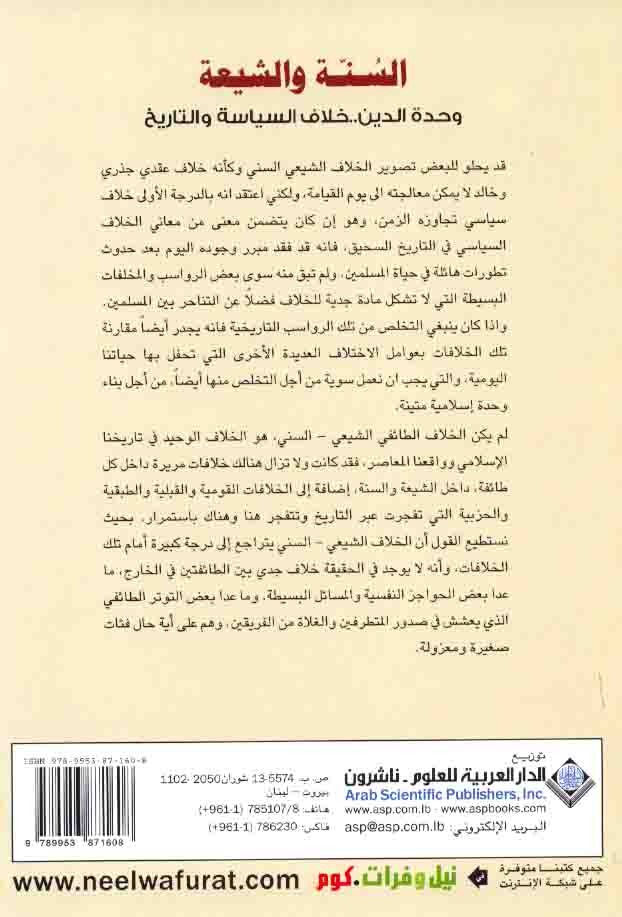 السُنّة والشيعة
وحدة الدين..خلاف السياسة والتاريخ
قد يحلو للبعض تصوير الخلاف الشيعي السني وكأنه خلاف عقدي جذري
وخالد لا يمكن معالجته الى يوم القيامة، ولكني اعتقد انه بالدرجة الأولى خلاف
سياسي تجاوزه الزمن، وهو إن كان يتضمن معنى من معاني الخلاف
السياسي في التاريخ السحيق، فانه قد فقد مبرر وجوده اليوم بعد حدوث
تطورات هائلة في حياة المسلمين، ولم تبق منه سوى بعض الرواسب والمخلفات
البسيطة التي لا تشكل مادة جدية للخلاف فضلاً عن التناحر بين المسلمين.
واذا كان ينبغي التخلص من تلك الرواسب التاريخية فانه يجدر أيضاً مقارنة
تلك الخلافات بعوامل الاختلاف العديدة الأخرى التي تحفل بها حياتنا
اليومية، والتي يجب ان نعمل سوية من أجل التخلص منها أيضاً، من أجل بناء
وحدة إسلامية متينة.
لم يكن الخلاف الطائفي الشيعي – السني، هو الخلاف الوحيد في تاريخنا
الإسلامي وواقعنا المعاصر، فقد كانت ولا تزال هنالك خلافات مريرة داخل كل
طائفة، داخل الشيعة والسنة، إضافة إلى الخلافات القومية والقبلية والطبقية
والحزبية التي تفجرت عبر التاريخ وتتفجر هنا وهناك باستمرار، بحيث
نستطيع القول أن الخلاف الشيعي – السني يتراجع إلى درجة كبيرة أمام تلك
الخلافات، وأنه لا يوجد في الحقيقة خلاف جدي بين الطائفتين في الخارج، ما
عدا بعض الحواجز النفسية والمسائل البسيطة، وما عدا بعض التوتر الطائفي
الذي يعشش في صدور المتطرفين والغلاة من الفريقين، وهم على أية حال فئات
صغيرة ومعزولة.
توزيع
الدار العربية للعلوم ـ ناشرون
Arab Scientific Publishers, Inc.
www.asp.com.lb - www.aspbooks.com
البريد الإلكتروني: asp@asp.com.lb
ص. ب. 5574-13 شوران 2050-1102
بيروت – لبنان
هاتف: 785107/8 (1-961+)
فاكس: 786230 (1-961+)
ISBN 978-9953-87-160-8
9 789953 871608
جميع كتبنا متوفرة
على شبكة الإنترنت
نيل وفرات.كوم
www.neelwafurat.com